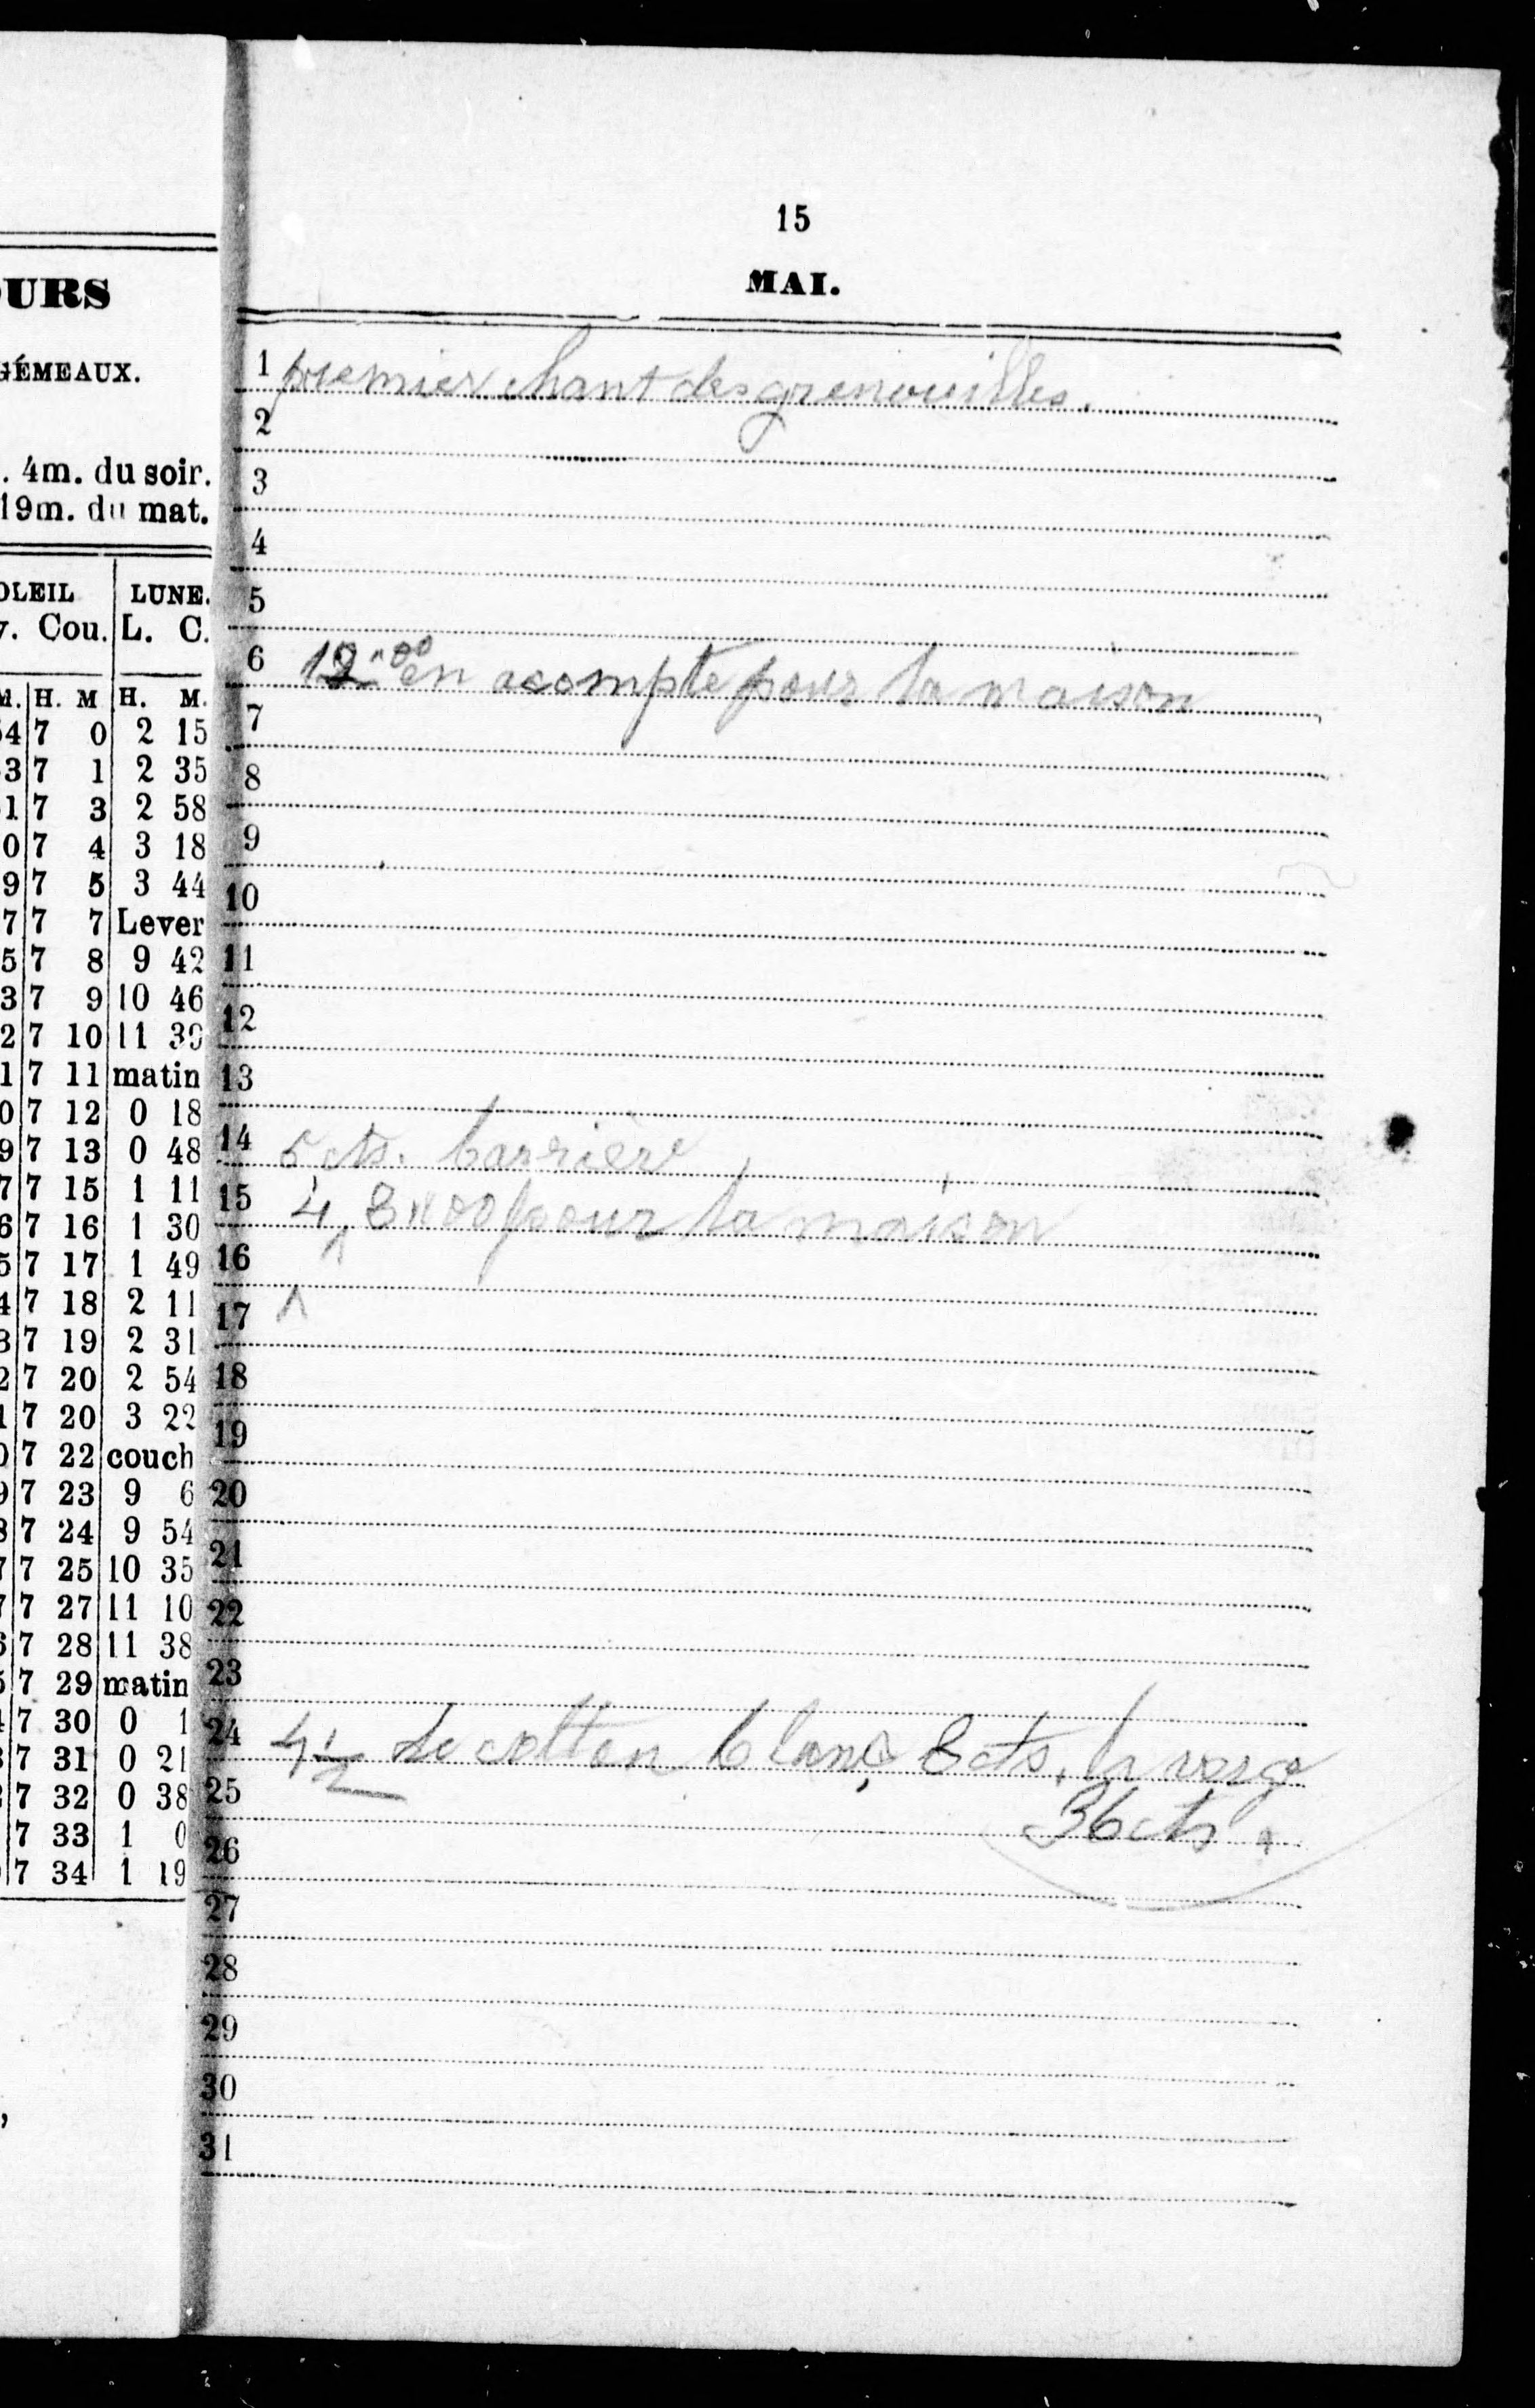 URS
GÉMEAUX.
. 4m. du soir.
19m. du mat.
OLEIL LUNE.
. Cou. L. C.
M. H. M H. M.
54 7 0 2 15
3 7 1 2 35
1 7 3 2 58
0 7 4 3 18
9 7 5 3 44
7 7 7 Lever
5 7 8 9 42
3 7 9 10 46
2 7 10 11 39
1 7 11 matin
0 7 12 0 18
9 7 13 0 48
7 7 15 1 11
6 7 16 1 30
5 7 17 1 49
4 7 18 2 11
3 7 19 2 31
2 7 20 2 54
1 7 20 3 22
0 7 22 couch
9 7 23 9 6
8 7 24 9 54
7 7 25 10 35
7 7 27 11 10
6 7 28 11 38
5 7 29 matin
7 30 0 1
7 31 0 21
7 32 0 38
7 33 1 0
7 34 1 19
15
MAI.
1 premier chant des grenouilles.
2
3
4
5
6 12"00 en acompte pour la maison
7
8
9
10
11
12
13
14 5 cts. barrière
15 4, 8"00 pour la maison
16
17
18
19
20
21
22
23
24 4 1/2 de cotton blanc 8 cts. la verge
25
36 cts.
26
27
28
29
30
31